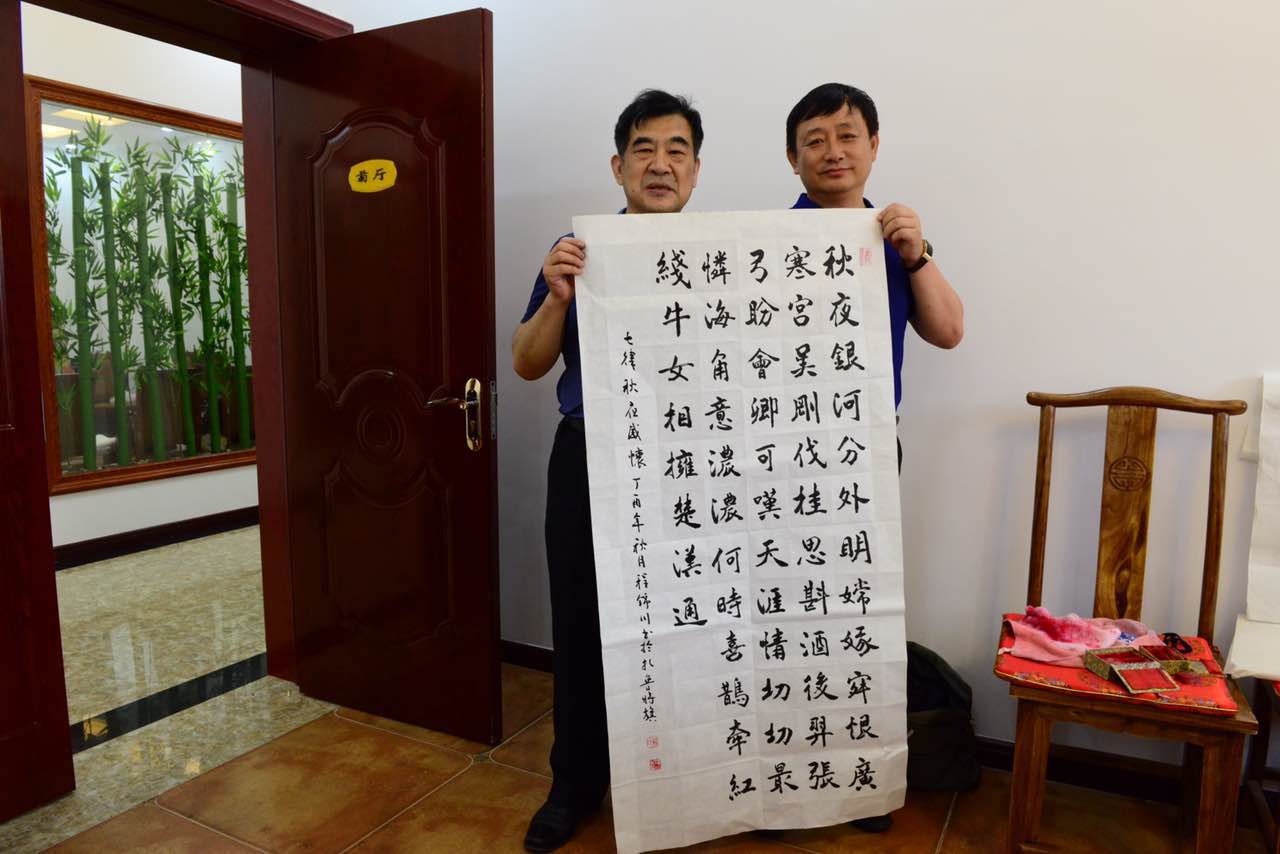 菊厅
秋夜銀河分外明嫦娥恨廣
寒宮吳剛伐桂思斟酒後羿張
弓盼會卿可嘆天涯情切切最
憐海角意濃濃何時喜鵲牽紅
綫牛女相擁楚漢通
七律秋夜感懷丁酉年秋月程錦川书於扎魯特旗